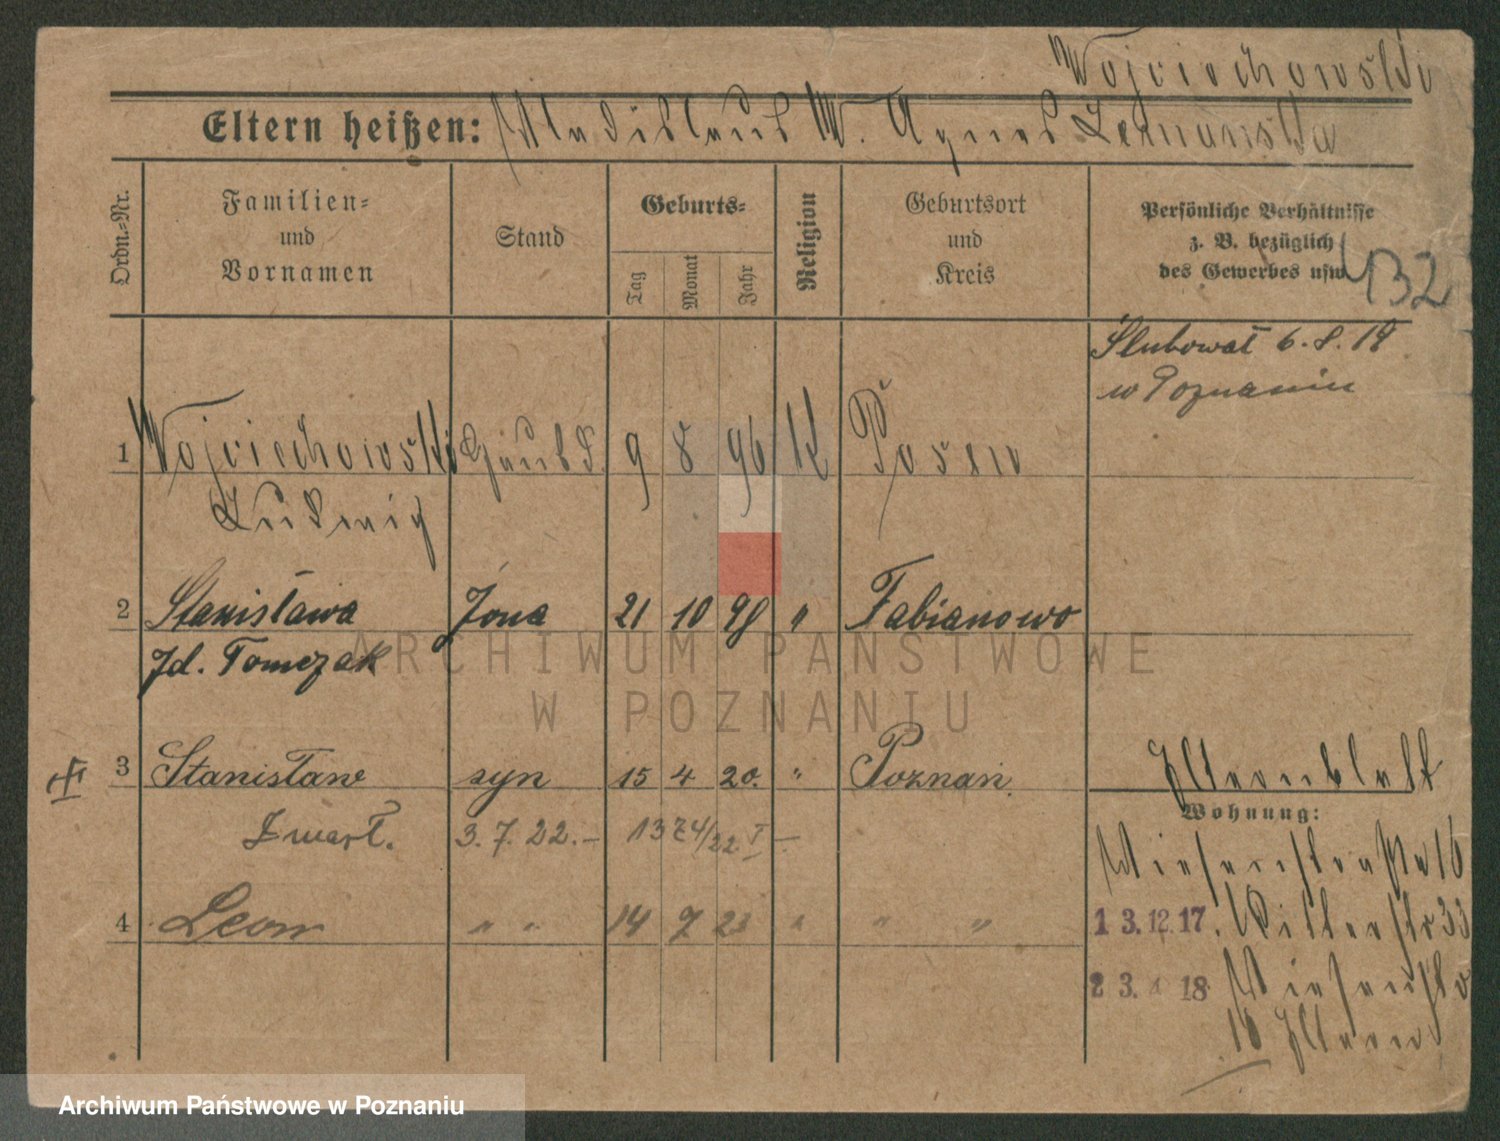 Wojciechowski
Eltern heißen: Wladislaus W. Agnes
Ordn.-Nr.
Familien-
und
Vornamen
Stand
Geburts-
Tag
Monat
Jahr
Religion
Geburtsort
und
Kreis
Persönliche Verhältnisse
z. B. bezüglich
des Gewerbes usw.
132
Ślubował 6.8.18
w Poznaniu
1 Wojciechowski 9 8 96 K Posen
Ludwig
2 Stanisława żona 21 10 98 " Fabianowo
zd. Tomczak
3 Stanisław syn 15 4 20. " Poznań.
Zmarł. 3. 7. 22. – 1374/22 I –
4 Leon " " 14 7 23 " " "
Elternblatt
Wohnung:
Wiesenstraße 16
13.12.17. Ritterstr 33
23. 4 18 Wiesenstr
16 Eltern
ARCHIWUM PAŃSTWOWE
W POZNANIU
Archiwum Państwowe w Poznaniu